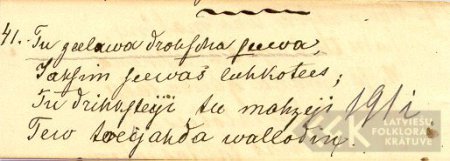 41. Tu zeelawa drohscha seewa,
Jaksim seewas luhkotees;
Tu drihksteji tu mahzeji 1951,
Tew wallodiņ.
LATVIEŠU
FOLKLORAS
KRĀTUVE